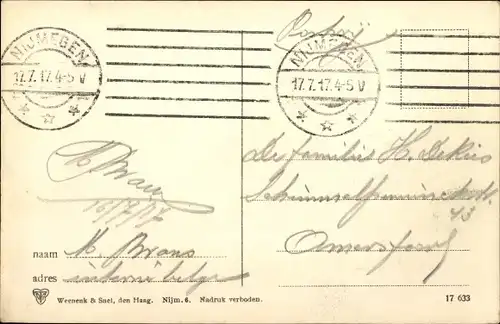 NIJMEGEN
17.7.17.4-5 V
NIJMEGEN
17.7.17.4-5 V
De familie H. Dekius
Amersfoort
16/7/17
naam M. Brans
adres interné belge
Weenenk & Snel, den Haag. Nijm. 6. Nadruk verboden.
17 633